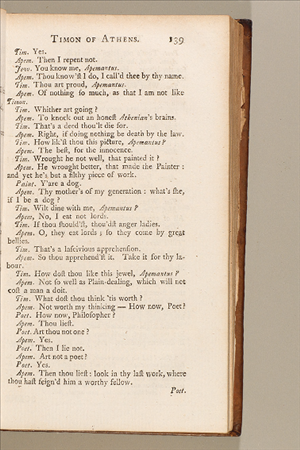 TIMON OF ATHENS. 139
Tim. Yes.
Apem. Then I repent not.
Jew. You know me, Apemantus.
Apem. Thou know'ſt I do, I call'd thee by thy name.
Tim. Thou art proud, Apemantus.
Apem. Of nothing ſo much, as that I am not like
Timon.
Tim. Whither art going ?
Apem. To knock out an honeſt Athenian's brains.
Tim. That's a deed thou'lt die for.
Apem. Right, if doing nothing be death by the law.
Tim. How lik'ſt thou this picture, Apemantus ?
Apem. The beſt, for the innocence.
Tim. Wrought he not well, that painted it ?
Apem. He wrought better, that made the Painter :
and yet he's but a filthy piece of work.
Paint. Y'are a dog.
Apem. Thy mother's of my generation : what's ſhe,
if I be a dog ?
Tim. Wilt dine with me, Apemantus ?
Apem. No, I eat not lords.
Tim. If thou ſhould'ſt, thou'dſt anger ladies.
Apem. O, they eat lords ; ſo they come by great
bellies.
Tim. That's a laſcivious apprehenſion.
Apem. So thou apprehend'ſt it. Take it for thy la-
bour.
Tim. How doſt thou like this jewel, Apemantus ?
Apem. Not ſo well as Plain-dealing, which will not
coſt a man a doit.
Tim. What doſt thou think 'tis worth ?
Apem. Not worth my thinking — How now, Poet?
Poet. How now, Philoſopher ?
Apem. Thou lieſt.
Poet. Art thou not one ?
Apem. Yes.
Poet. Then I lie not.
Apem. Art not a poet ?
Poet. Yes.
Apem. Then thou lieſt : look in thy laſt work, where
thou haſt feign'd him a worthy fellow.
Poet.